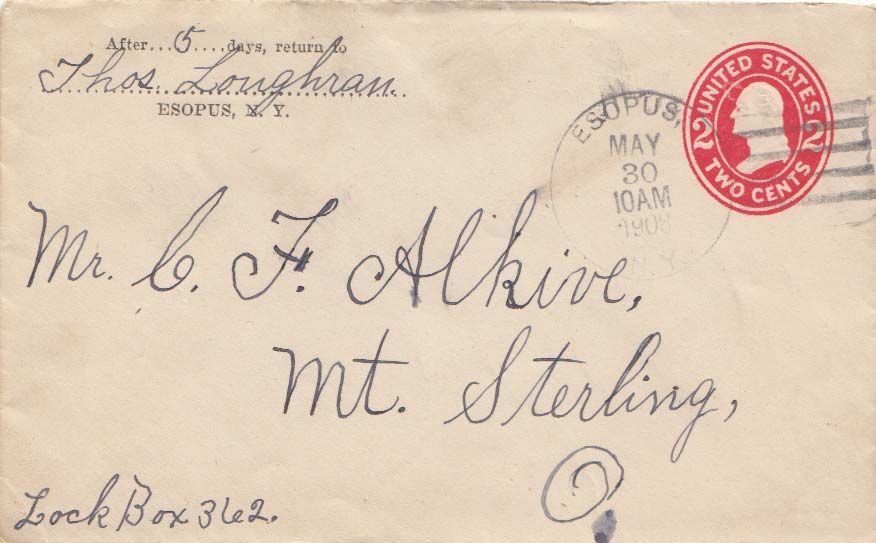 After...5....days, return to
Thos. Loughran
ESOPUS, N. Y.
ESOPUS,
MAY
30
10AM
1908
N.Y.
UNITED STATES
2 2
TWO CENTS
Mr. C. F. Alkive,
Mt. Sterling,
O.
Lock Box 362.